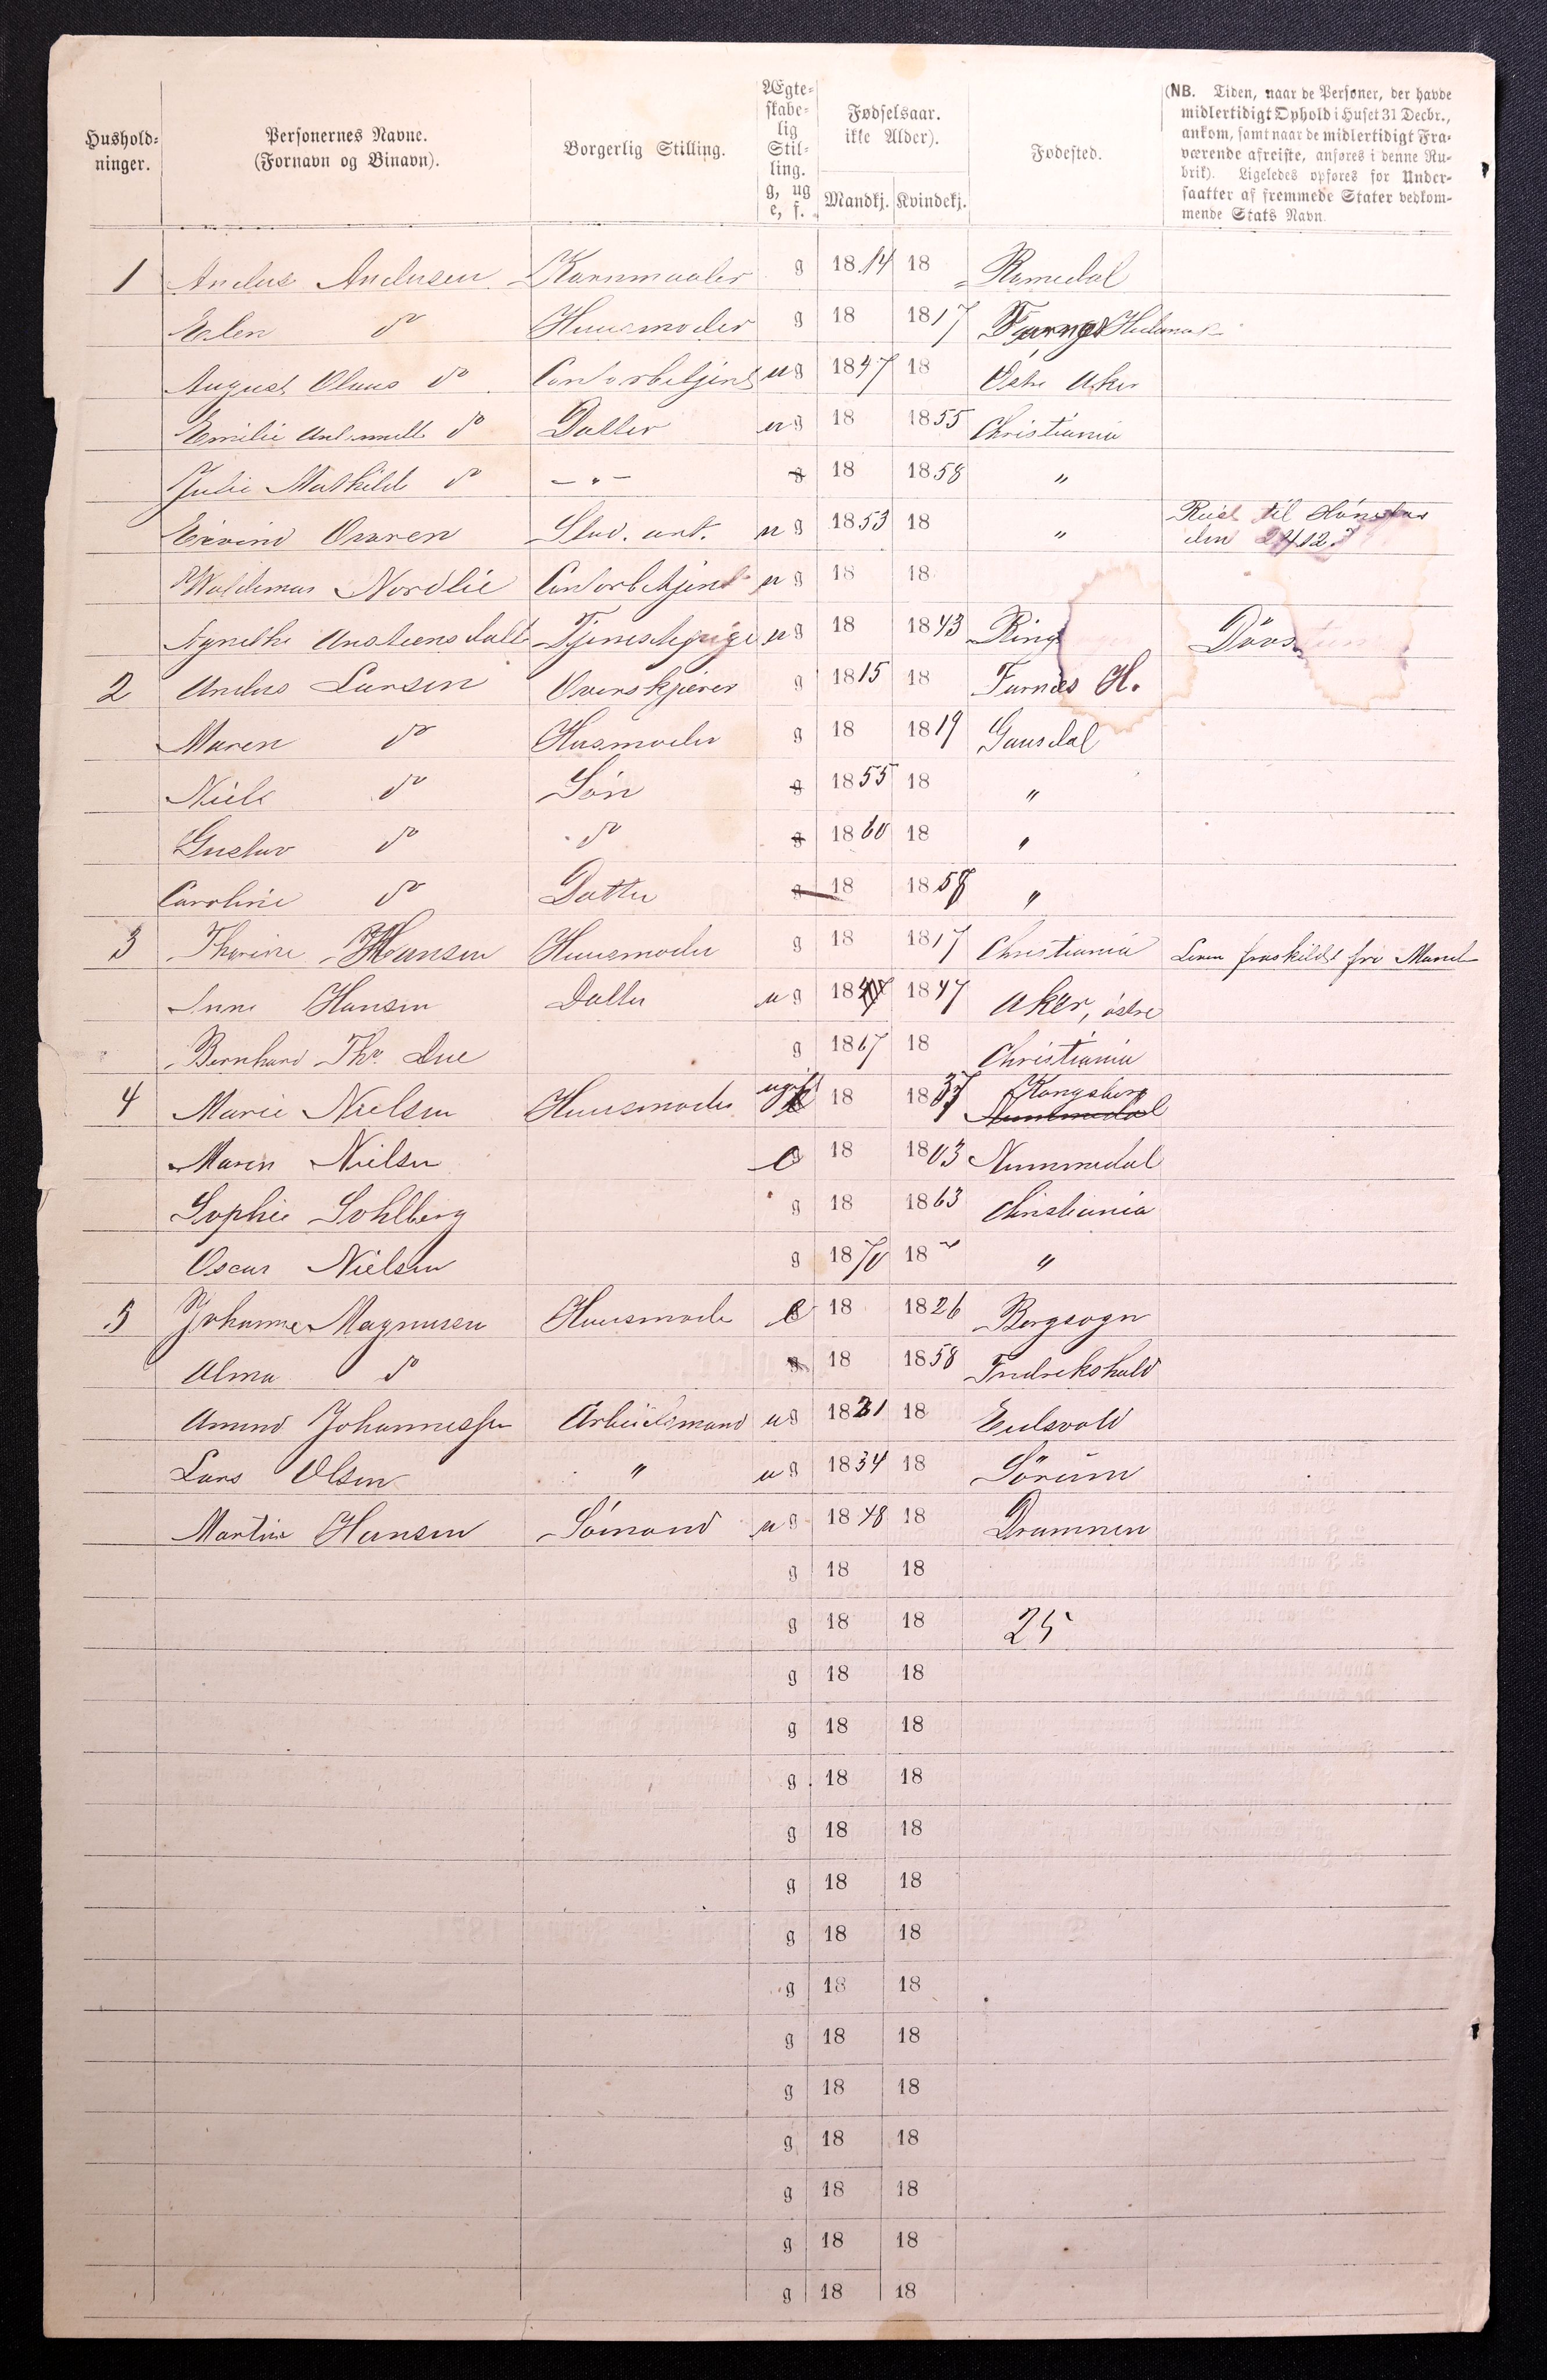 Hushold-
ninger.
Personernes Navne.
(Fornavn og Binavn).
Borgerlig Stilling.
Ægte-
skabe-
lig
Stil-
ling.
g, ug
e, f.
Fødselsaar.
ikke Alder).
Mandkj. Kvindekj.
Fødested.
(NB. Tiden, naar de Personer, der havde
midlertidigt Ophold i Huset 31 Decbr.,
ankom, samt naar de midlertidigt Fra-
værende afreiste, anføres i denne Ru-
brik). Ligeledes opføres for Under-
saatter af fremmede Stater vedkom-
mende Stats Navn
1 Anders Andersen Kornmaaler g 1814 18 Romedal
Elen do Huusmoder g 18 1817 Furnæs Hedemark
August Olaus do Contorbetjent ug 1847 18 Østre Aker
Emilie do Datter ug 18 1855 Christiania
Julie Mathilde do - " - g 18 1858 "
Eivind Stud. art. ug 1853 18 " Reist til
den 24 12
Waldemar Nordlie Contorbetjent ug 18 18
Agnethe Tjenestepige ug 18 1843 Ring
2 Anders Larsen Overskjærer g 1815 18 Furnæs H.
Maren do Husmoder g 18 1819 Gausdal
Niels do Søn g 1855 18 "
Gustav do do g 1860 18 "
Caroline do Datter g 18 1857 "
3 Thorine Hansen Huusmoder g 18 1817 Christiania Lever fraskildt fra Manden
Anne Hansen Datter ug 18 1847 Aker, østre
Bernhard Thr. Due g 1867 18 Christiania
4 Marie Nielsen Huusmoder ugift 18 1837 Kongsberg Nummedal
Maren Nielsen e 18 1803 Nummedal
Sophie Sohlberg g 18 1863 Christiania
Oscar Nielsen g 1870 18 "
5 Johanne Magnusen Huusmoder e 18 1826 Bergsogn
Alma do g 18 1858 Fredrikshald
Amund Johannessen Arbeidsmand ug 1831 18 Eidsvold
Lars Olsen " ug 1834 18 Sørum
Martin Hansen Sømand ug 1848 18 Drammen
g 18 18
g 18 18 25
g 18 18
g 18 18
g 18 18
g 18 18
g 18 18
g 18 18
g 18 18
g 18 18
g 18 18
g 18 18
g 18 18
g 18 18
g 18 18